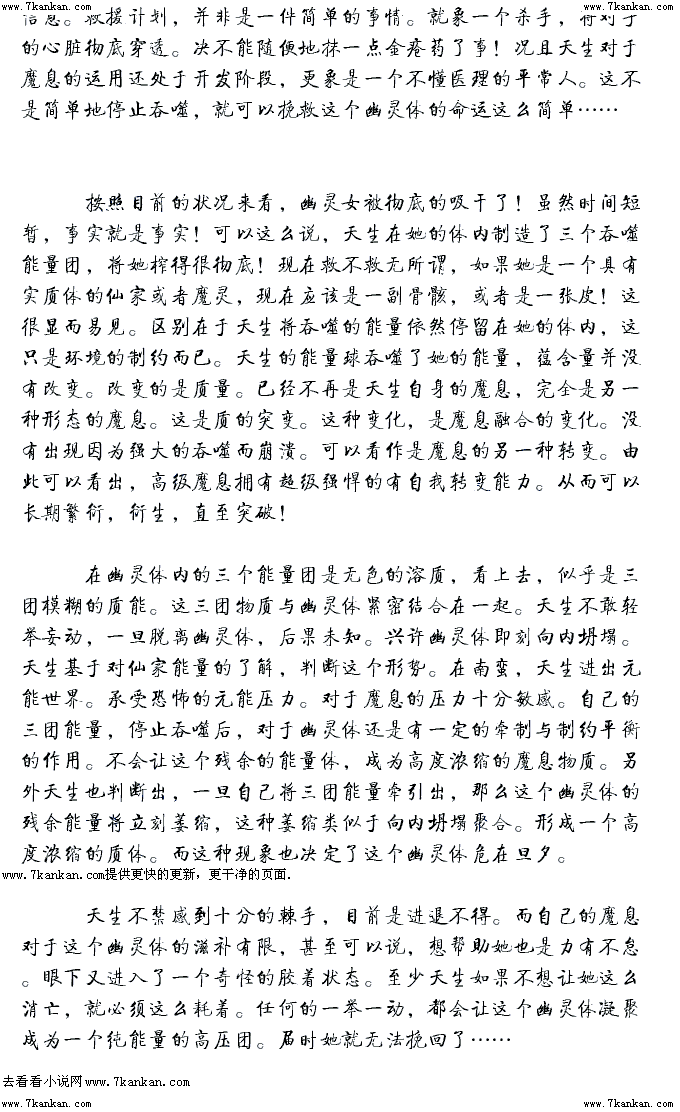 www.7kankan.com www.7kankan.com
信息。救援计划，并非是一件简单的事情。就象一个杀手，将对手
的心脏彻底穿透。决不能随便地抹一点金疮药了事！况且天生对于
魔息的运用还处于开发阶段，更象是一个不懂医理的平常人。这不
是简单地停止吞噬，就可以挽救这个幽灵体的命运这么简单……
按照目前的状况来看，幽灵女被彻底的吸干了！虽然时间短
暂，事实就是事实！可以这么说，天生在她的体内制造了三个吞噬
能量团，将她榨得很彻底！现在救不救无所谓，如果她是一个具有
实质体的仙家或者魔灵，现在应该是一副骨骸，或者是一张皮！这
很显而易见。区别在于天生将吞噬的能量依然停留在她的体内，这
只是环境的制约而已。天生的能量球吞噬了她的能量，蕴含量并没
有改变。改变的是质量。已经不再是天生自身的魔息，完全是另一
种形态的魔息。这是质的突变。这种变化，是魔息融合的变化。没
有出现因为强大的吞噬而崩溃。可以看作是魔息的另一种转变。由
此可以看出，高级魔息拥有超级强悍的有自我转变能力。从而可以
长期繁衍，衍生，直至突破！
在幽灵体内的三个能量团是无色的溶质，看上去，似乎是三
团模糊的质能。这三团物质与幽灵体紧密结合在一起。天生不敢轻
举妄动，一旦脱离幽灵体，后果未知。兴许幽灵体即刻向内坍塌。
天生基于对仙家能量的了解，判断这个形势。在南蛮，天生进出元
能世界。承受恐怖的元能压力。对于魔息的压力十分敏感。自己的
三团能量，停止吞噬后，对于幽灵体还是有一定的牵制与制约平衡
的作用。不会让这个残余的能量体，成为高度浓缩的魔息物质。另
外天生也判断出，一旦自己将三团能量牵引出，那么这个幽灵体的
残余能量将立刻萎缩，这种萎缩类似于向内坍塌聚合。形成一个高
度浓缩的质体。而这种现象也决定了这个幽灵体危在旦夕。
www.7kankan.com提供更快的更新，更干净的页面.
天生不禁感到十分的棘手，目前是进退不得。而自己的魔息
对于这个幽灵体的滋补有限，甚至可以说，想帮助她也是力有不怠
。眼下又进入了一个奇怪的胶着状态。至少天生如果不想让她这么
消亡，就必须这么耗着。任何的一举一动，都会让这个幽灵体凝聚
成为一个纯能量的高压团。届时她就无法挽回了……
去看看小说网www.7kankan.com
www.7kankan.com www.7kankan.com